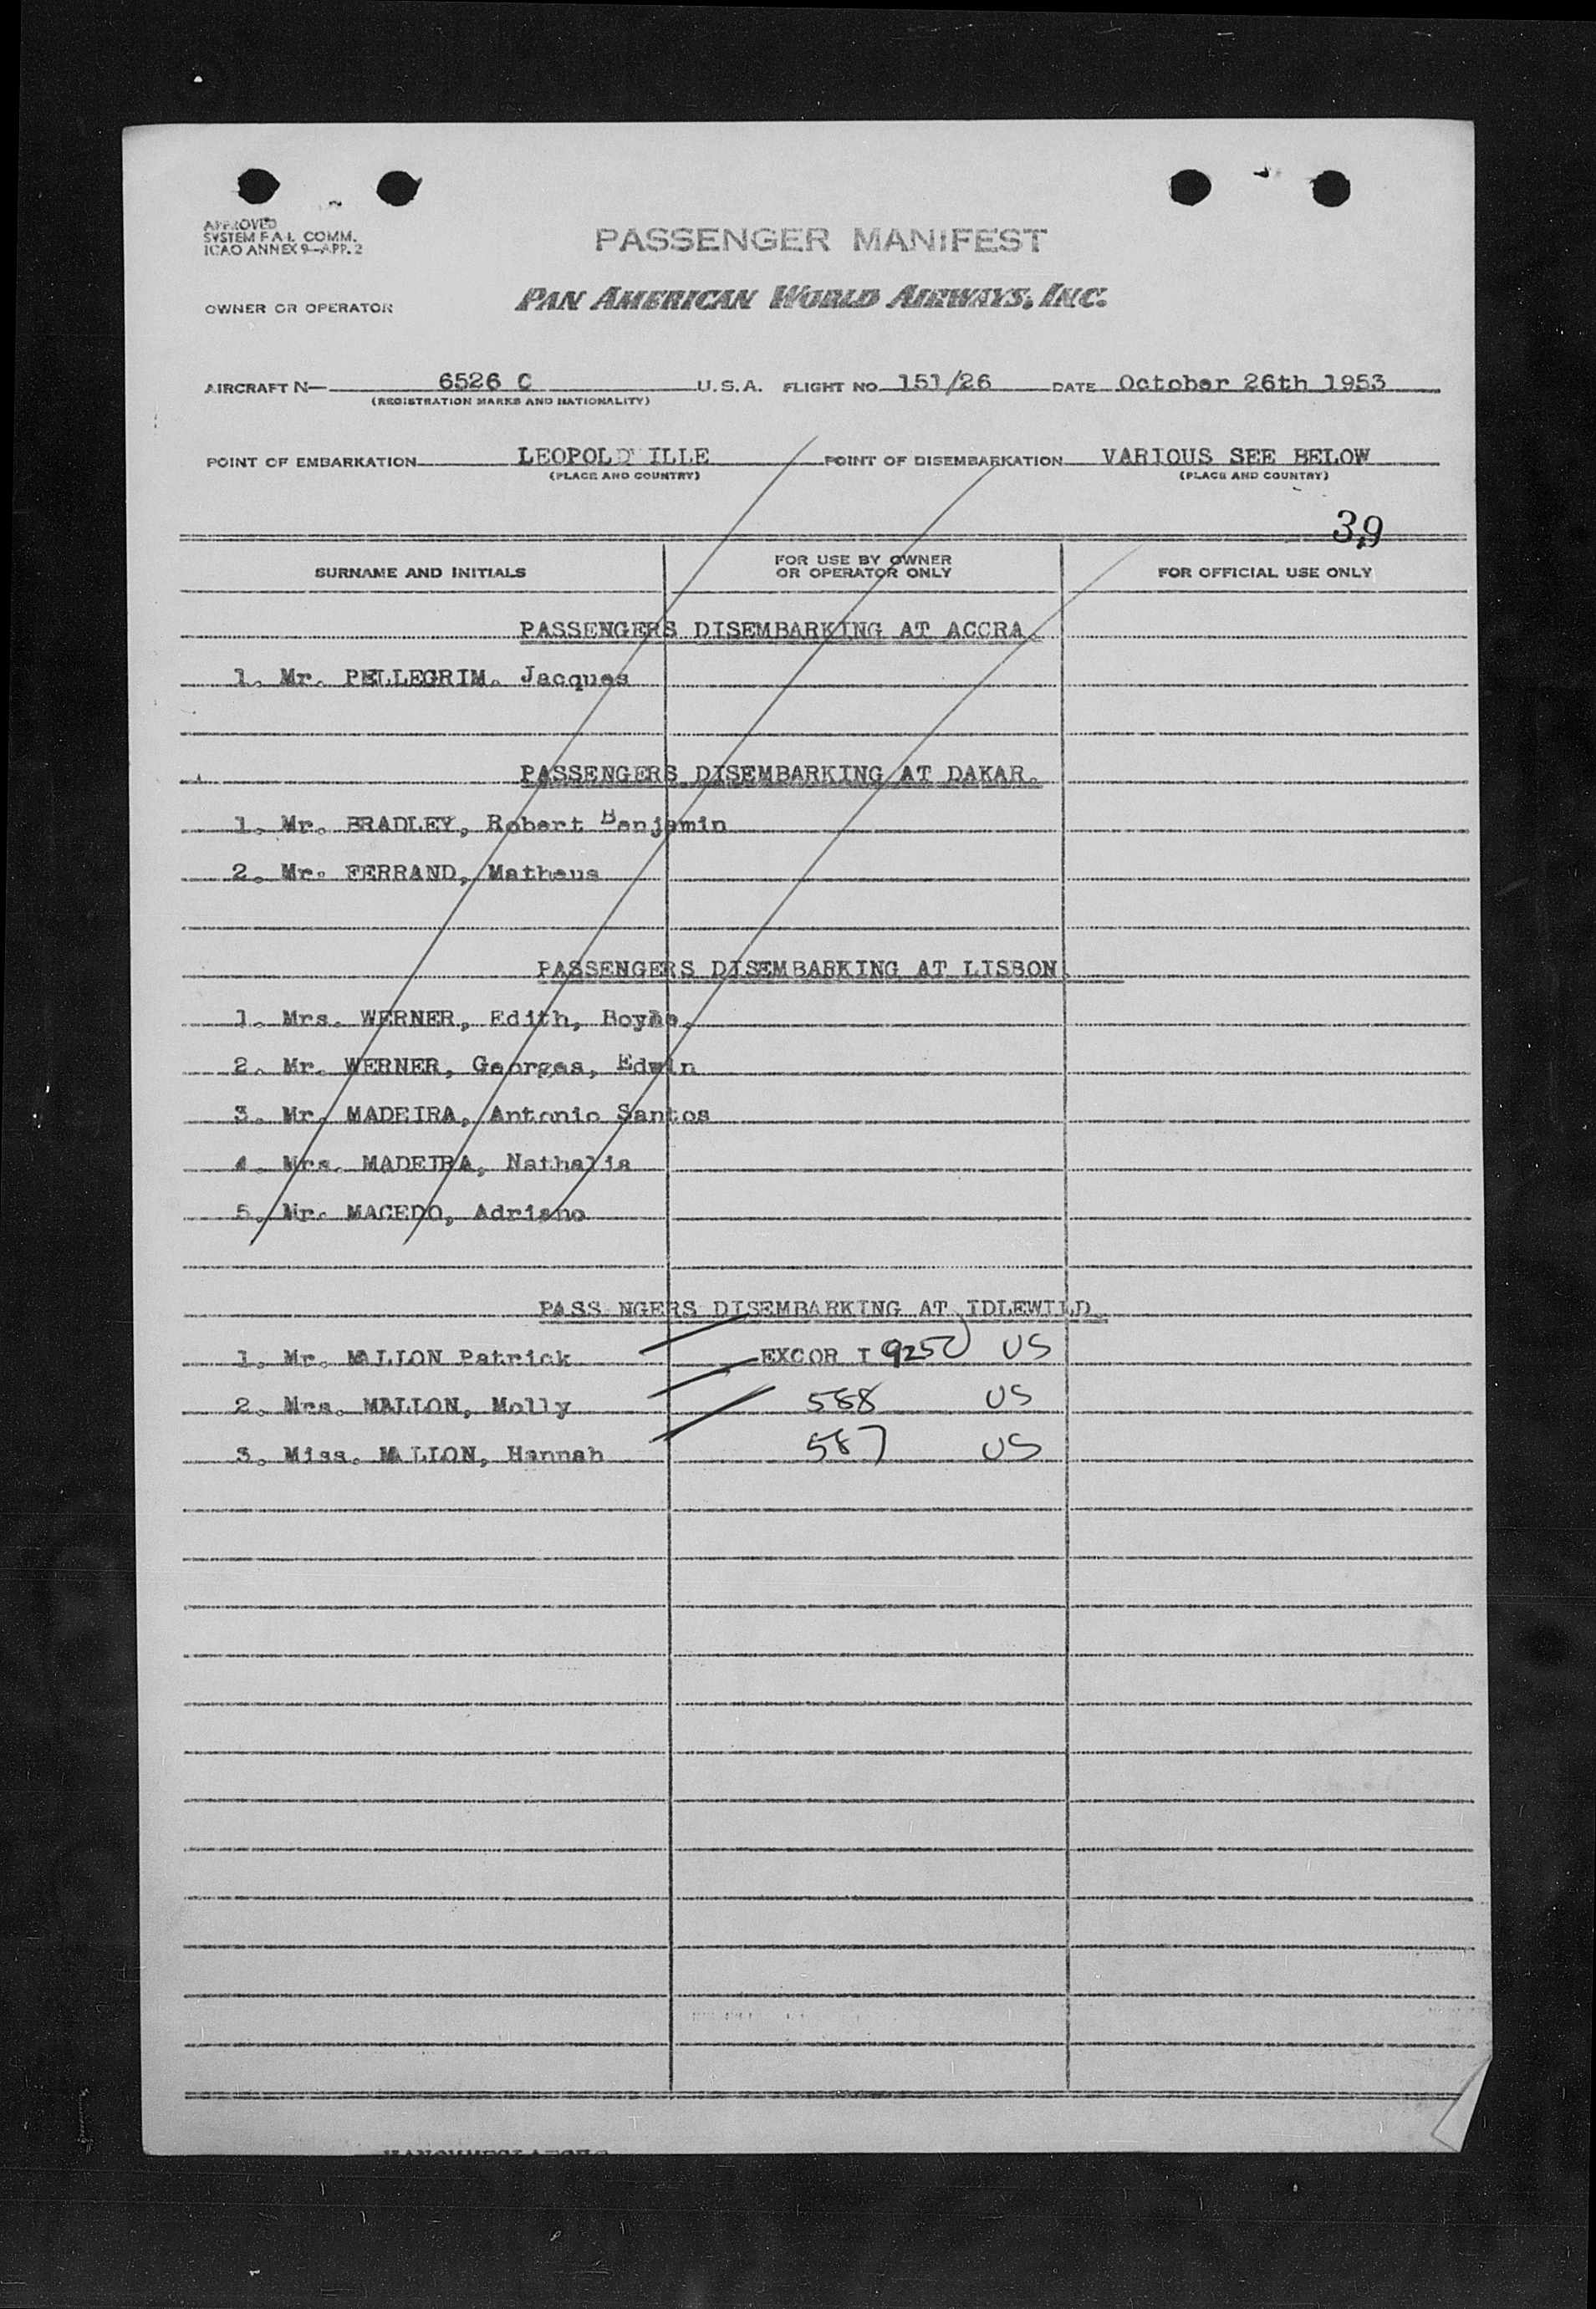 APPROVED
SYSTEM F.A.L. COMM.
ICAO ANNEX 9—APP. 2
PASSENGER MANIFEST
OWNER OR OPERATOR PAN AMERICAN WORLD AIRWAYS, INC.
AIRCRAFT N— 6526 C U.S.A. FLIGHT NO. 151/26 DATE October 26th 1953
(REGISTRATION MARKS AND NATIONALITY)
POINT OF EMBARKATION LEOPOLD ILLE POINT OF DISEMBARKATION VARIOUS SEE BELOW
(PLACE AND COUNTRY) (PLACE AND COUNTRY)
39
SURNAME AND INITIALS FOR USE BY OWNER OR OPERATOR ONLY FOR OFFICIAL USE ONLY
PASSENGERS DISEMBARKING AT ACCRA.
1. Mr. PELLEGRIM. Jacques
PASSENGERS DISEMBARKING AT DAKAR.
1. Mr. BRADLEY, Robert Benjamin
2. Mr. FERRAND, Matheus
PASSENGERS DISEMBARKING AT LISBON
1. Mrs. WERNER, Edith,
2. Mr. WERNER, Georges, Edwin
3. Mr. MADEIRA, Antonio Santos
4. Mrs. MADEIRA, Nathalia
5. Mr. MACEDO, Adriano
PASS NGERS DISEMBARKING AT IDLEWILD.
1. Mr. MALLON Patrick EXCOR I 9250 US
2. Mrs. MALLON, Molly 588 US
3. Miss. MALLON, Hannah 587 US